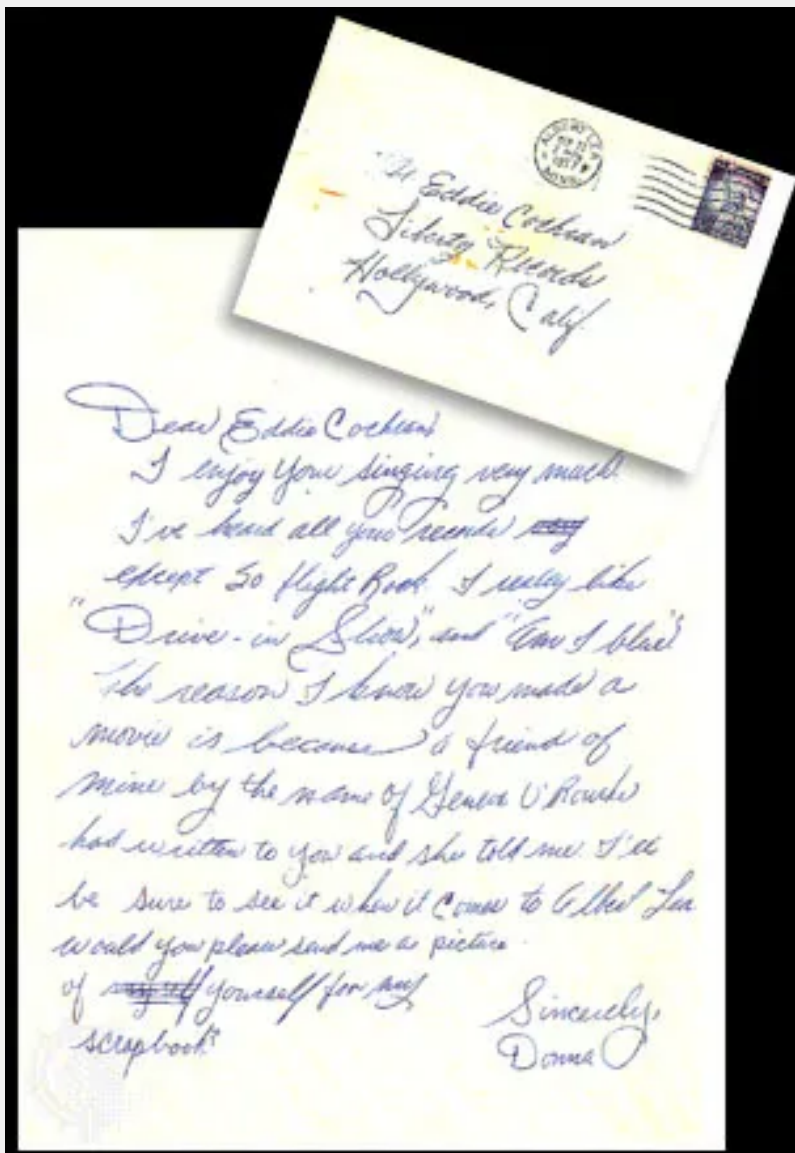 ALBERT LEA
1957
MINN.
Eddie Cochran
Liberty Records
Hollywood, Calif.
Dear Eddie Cochran,
I enjoy your singing very much.
I've heard all your records
except 20 flight Rock. I really like
"Drive-in Show", and "Am I blue"
The reason I know you made a
movie is because a friend of
mine by the name of Geneva O'Rourke
had written to you and she told me. I'll
be sure to see it when it comes to Albert Lea
would you please send me a picture
of yourself for my
scrapbook?
Sincerely,
Donna